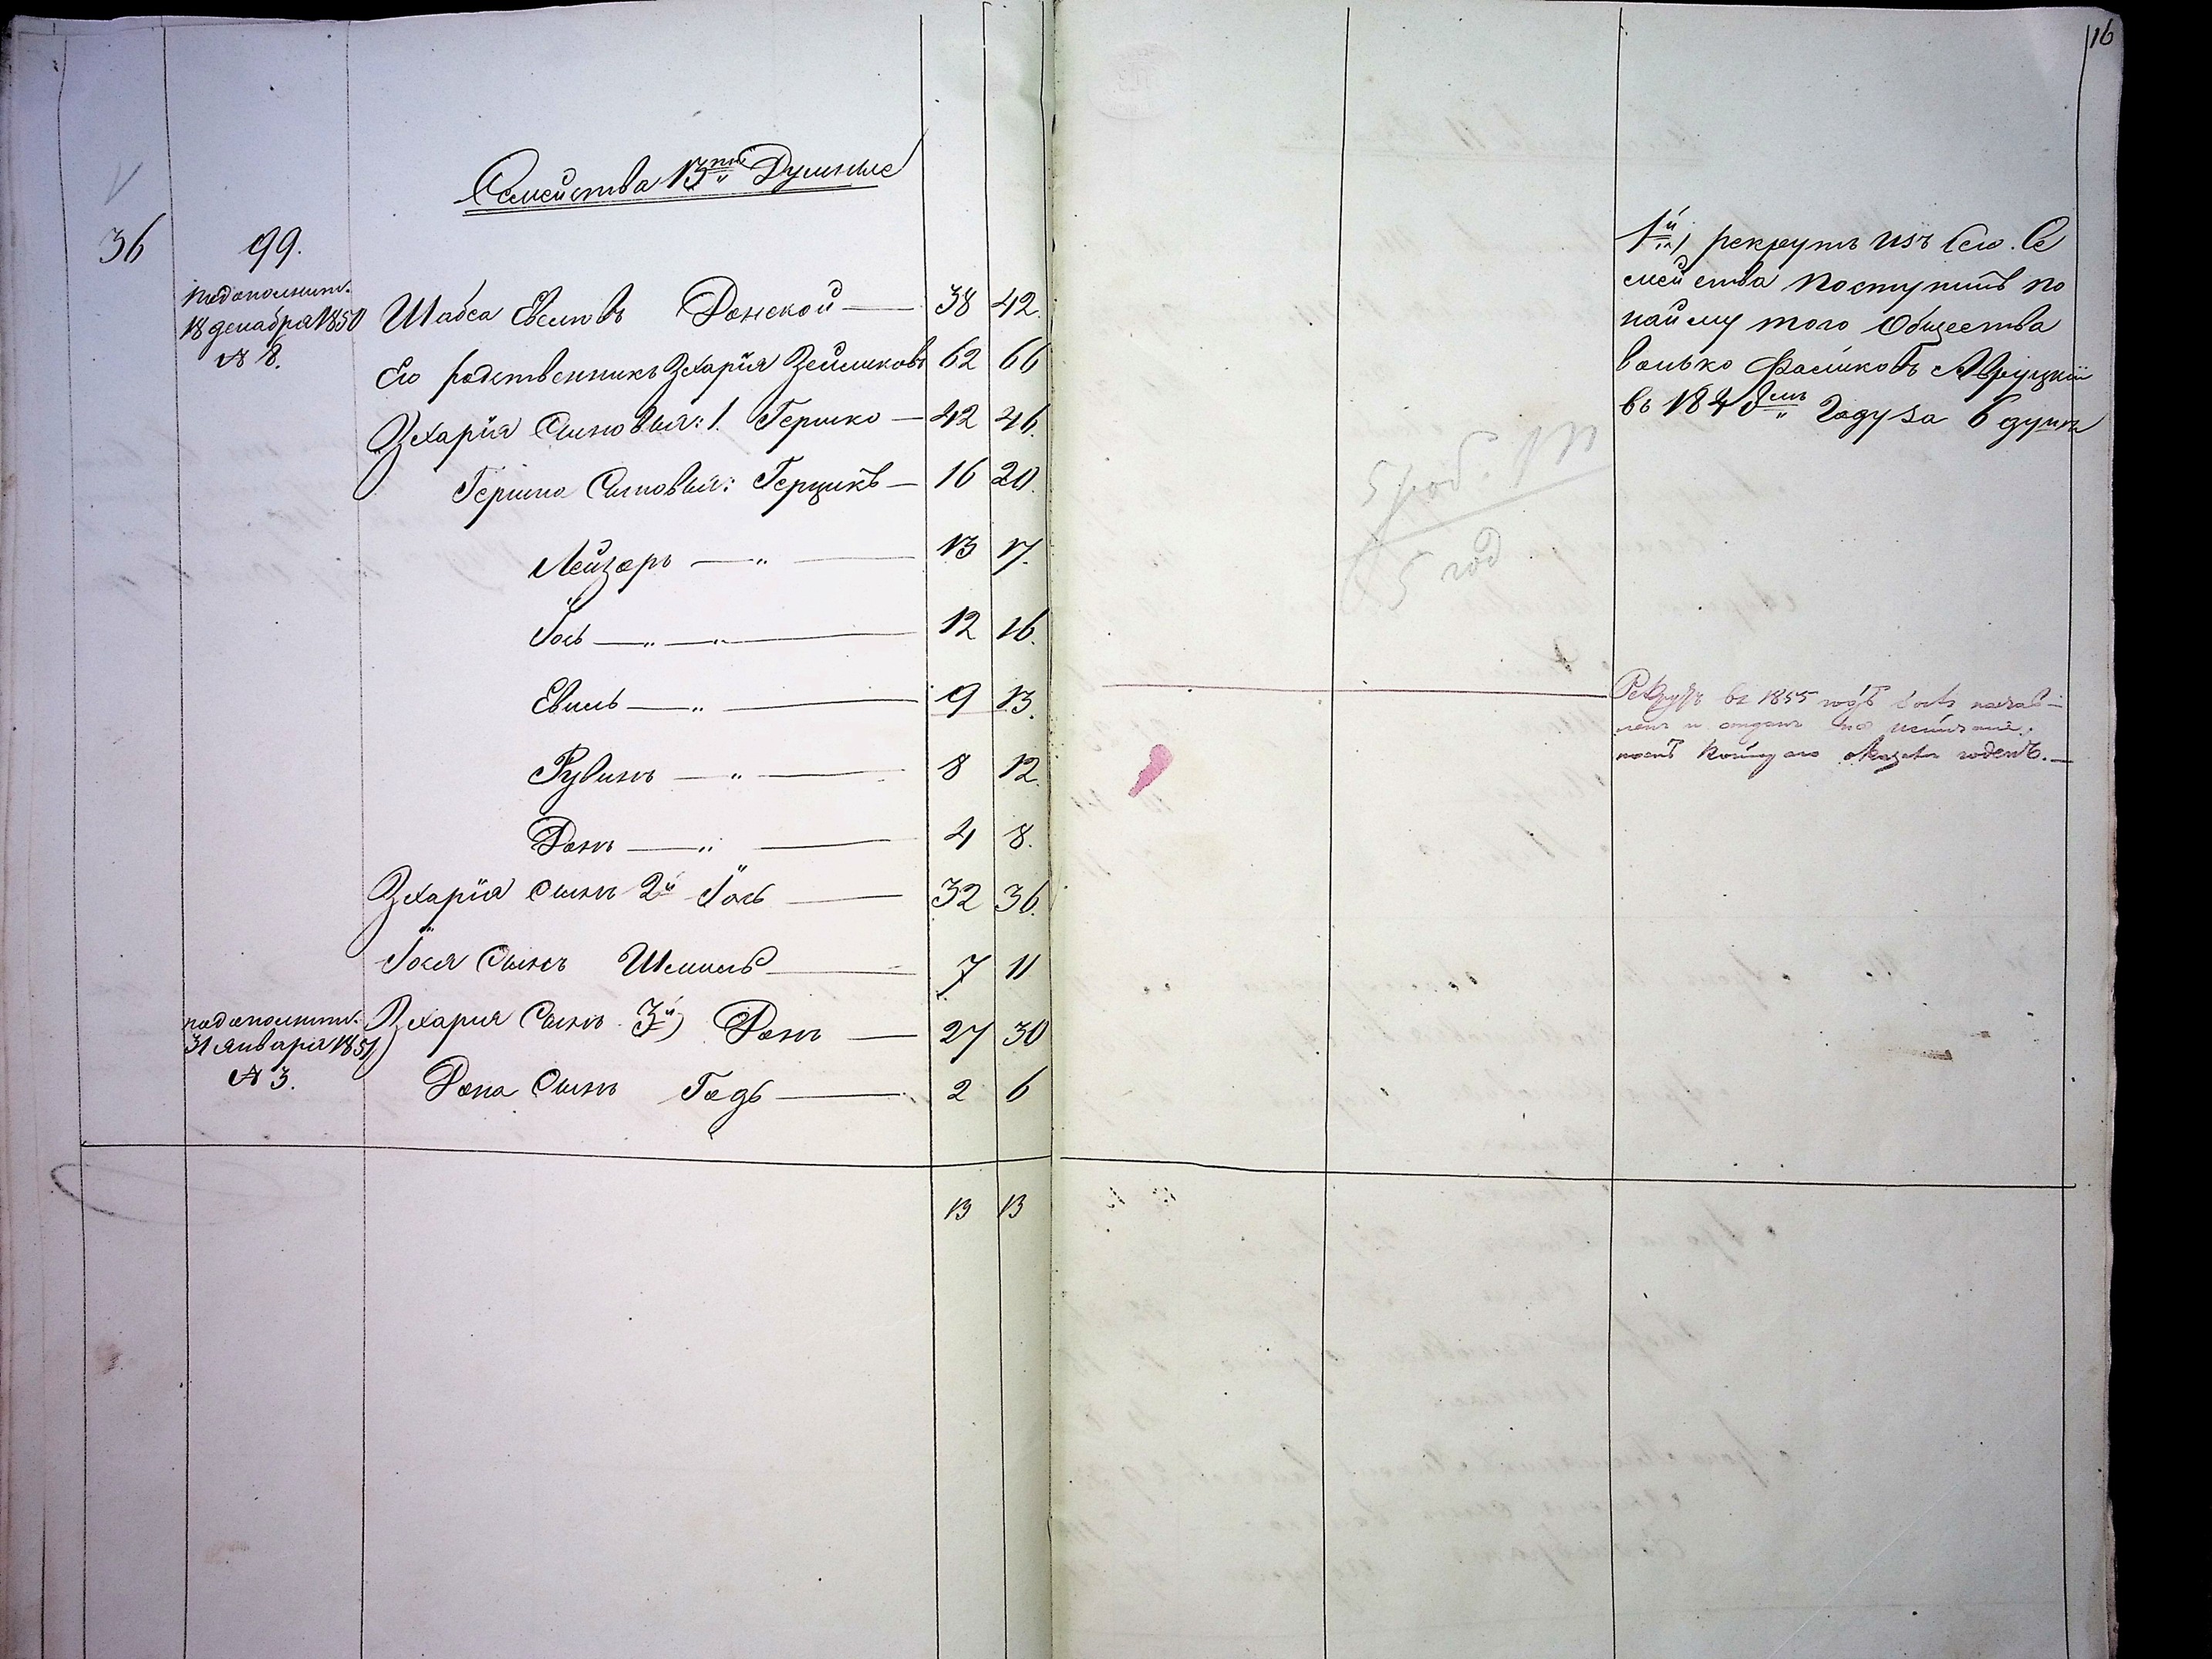 16
Семейства 13ти Душные
36
99.
по дополнит.
18 декабря 1850
№ 8.
Шабса Евелевъ Донской — 38 42.
Его родственникъ Зхарія Зейликовъ 62 66
Зхарія Сыновья: 1. Гершко — 42 46.
Гершка Сыновья: Герцикъ — 16 20.
Лейзаръ — „ — 13 17.
Іось — „ — „ — 12 16.
Евель — „ — 9 13.
Рувинъ — „ — 8 12.
Донъ — „ — 4 8.
Зхарія сынъ 2й Іось — 32 36.
Іося Сынъ Шмиль — 7 11
по дополнит.
31 января 1851
№ 3.
Зхария Сынъ 3й) Донъ — 27 30
Дона Сынъ Гадь — 2 6
13 13
1й) рекрутъ изъ сего Се
мейства поступилъ по
найму того Общества
в 184 году за 6 душъ
5 раб.
5 год
Рекрутъ въ 1855 годѣ
и отданъ
годенъ. —